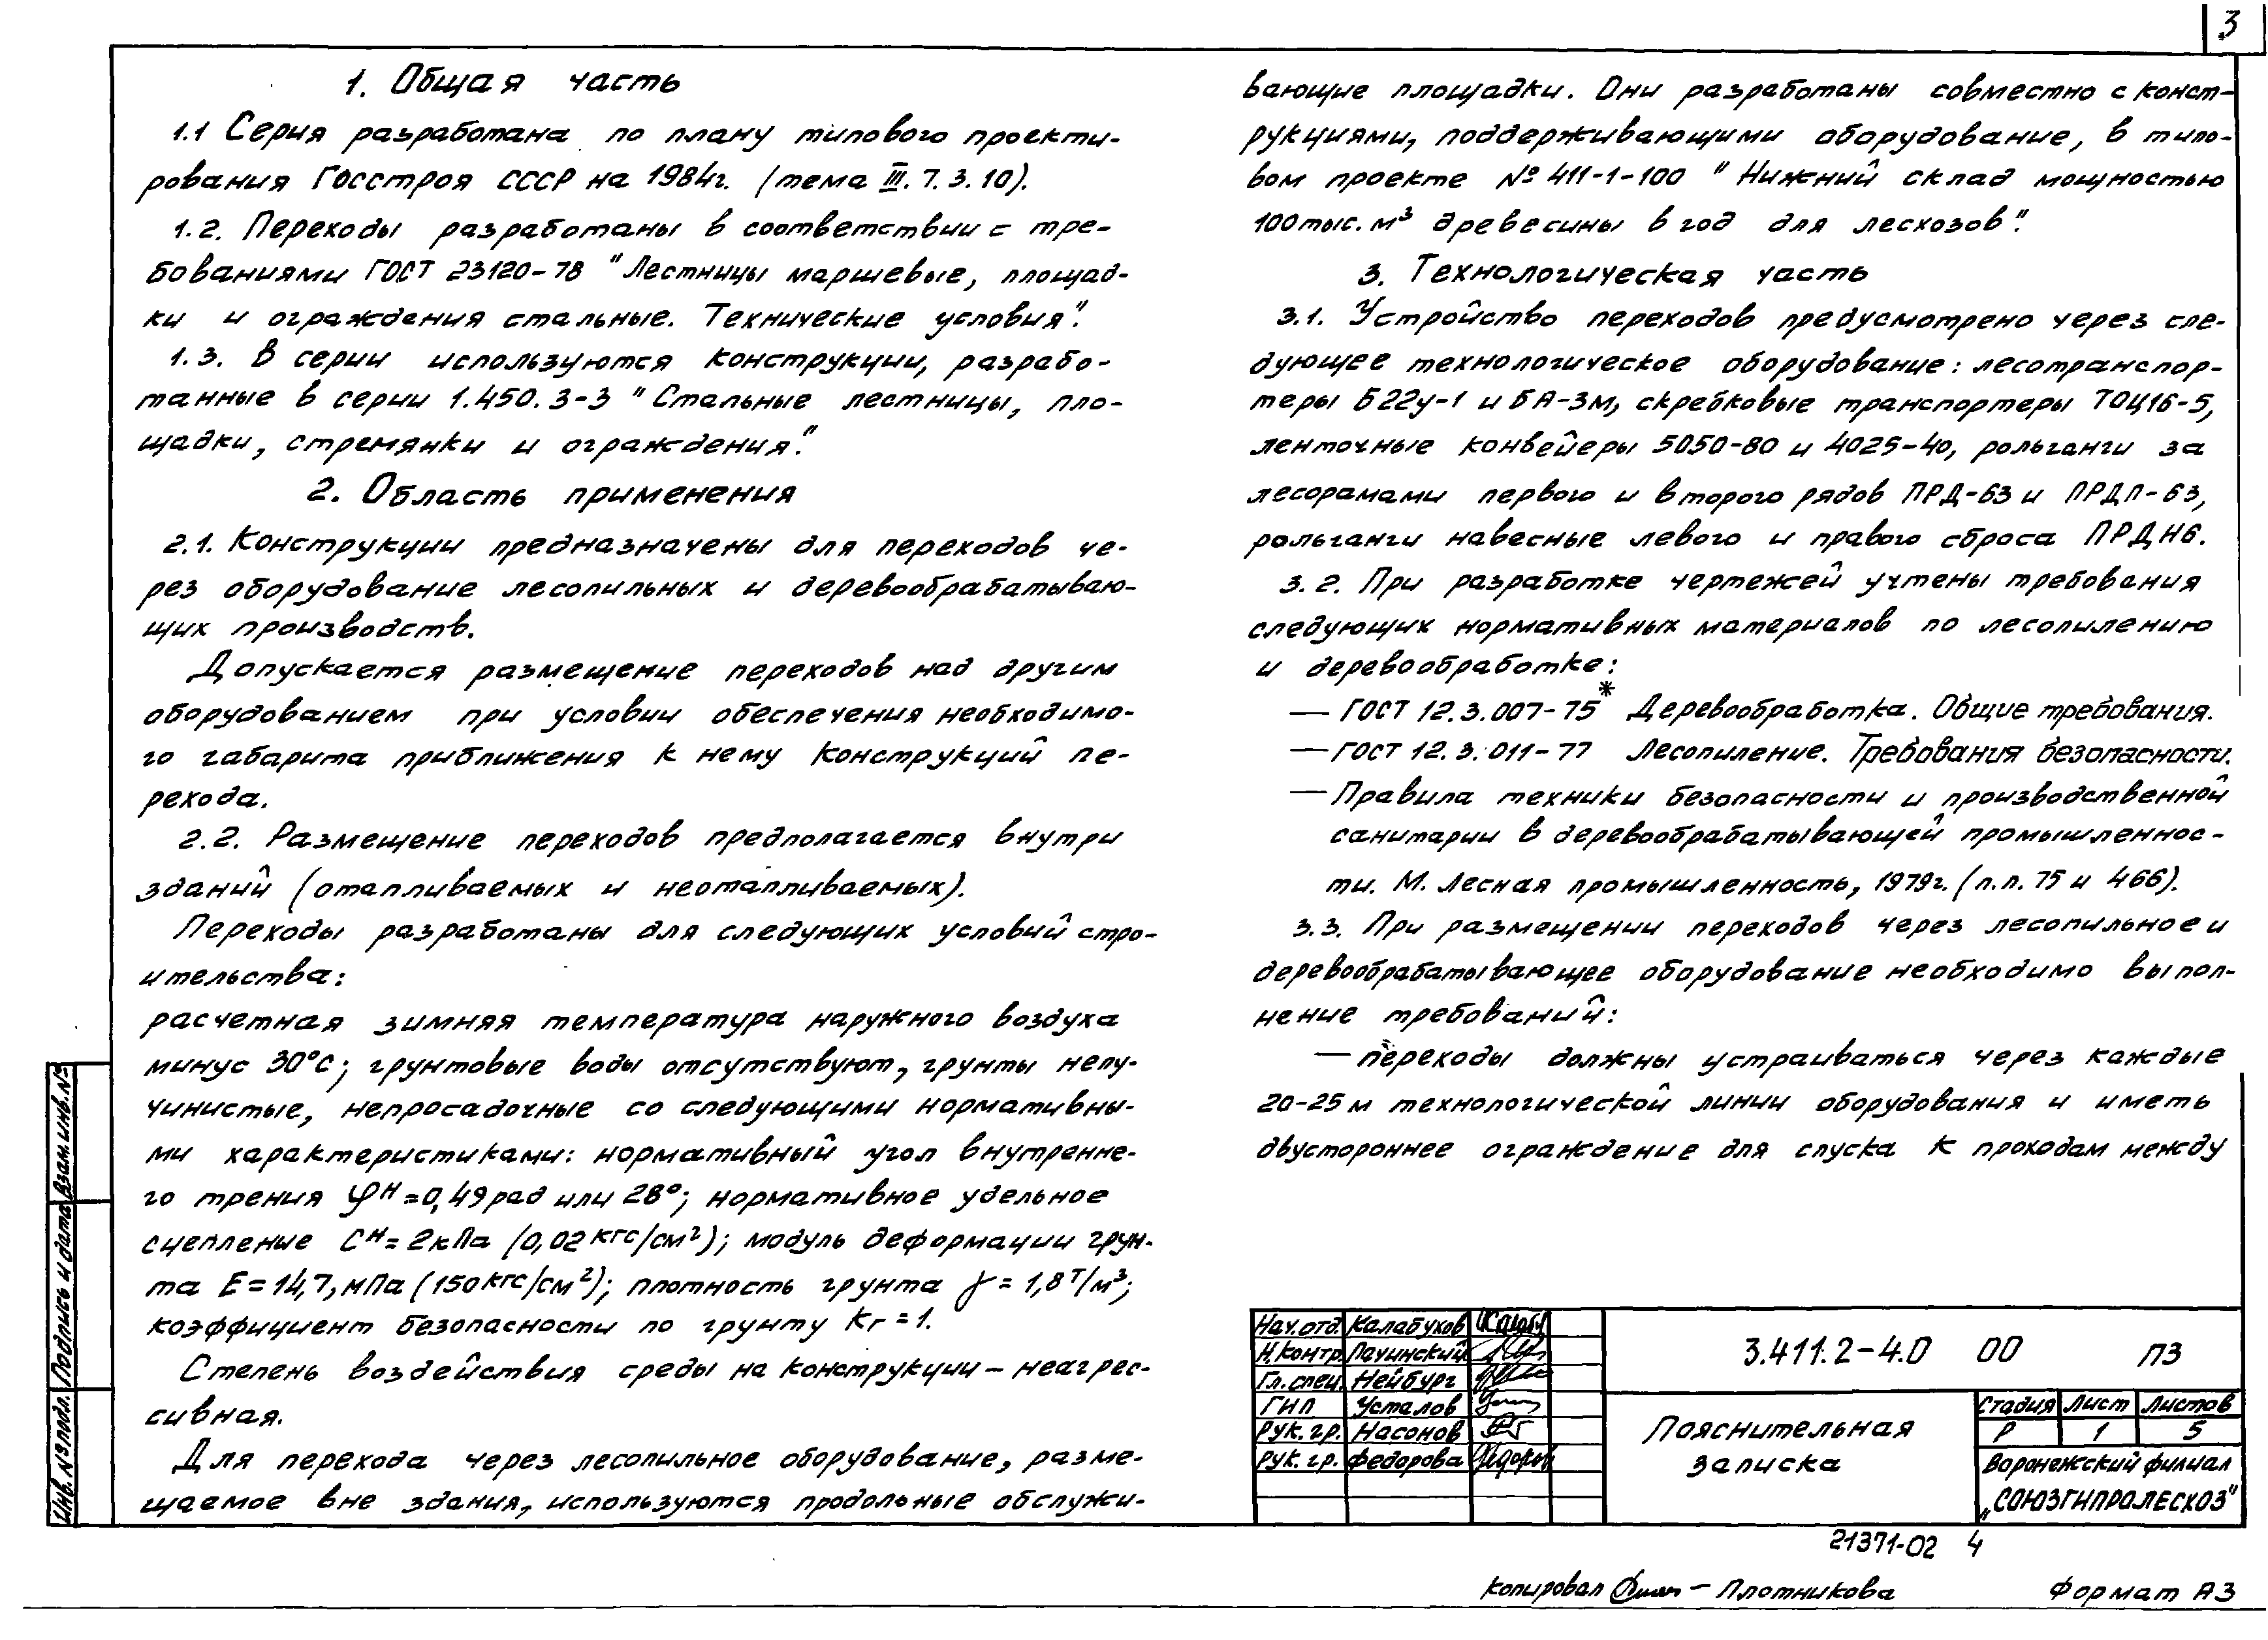 3
1. Общая часть
1.1 Серия разработана по плану типового проекти-
рования Госстроя СССР на 1984г. (тема III. 7. 3. 10).
1.2. Переходы разработаны в соответствии с тре-
бованиями ГОСТ 23120-78 "Лестницы маршевые, площад-
ки и ограждения стальные. Технические условия".
1.3. В серии используются конструкции, разрабо-
танные в серии 1.450.3-3 "Стальные лестницы, пло-
щадки, стремянки и ограждения".
2. Область применения
2.1. Конструкции предназначены для переходов че-
рез оборудование лесопильных и деревообрабатываю-
щих производств.
Допускается размещение переходов над другим
оборудованием при условии обеспечения необходимо-
го габарита приближения к нему конструкций пе-
рехода.
2.2. Размещение переходов предполагается внутри
зданий (отапливаемых и неотапливаемых).
Переходы разработаны для следующих условий стро-
ительства:
расчетная зимняя температура наружного воздуха
минус 30°С; грунтовые воды отсутствуют, грунты непу-
чинистые, непросадочные со следующими нормативны-
ми характеристиками: нормативный угол внутренне-
го трения φᴴ=0,49рад или 28°; нормативное удельное
сцепление Сᴴ=2кПа (0,02 кгс/см²); модуль деформации грун-
та Е=14,7, мПа (150 кгс/см²); плотность грунта γ=1,8 т/м³;
коэффициент безопасности по грунту Кг=1.
Степень воздействия среды на конструкции – неагрес-
сивная.
Для перехода через лесопильное оборудование, разме-
щаемое вне здания, используются продольные обслужи-
вающие площадки. Они разработаны совместно с конст-
рукциями, поддерживающими оборудование, в типо-
вом проекте № 411-1-100 "Нижний склад мощностью
100тыс. м³ древесины в год для лесхозов".
3. Технологическая часть
3.1. Устройство переходов предусмотрено через сле-
дующее технологическое оборудование: лесотранспор-
теры Б22у-1 и БА-3м, скребковые транспортеры ТОЦ16-5,
ленточные конвейеры 5050-80 и 4025-40, рольганги за
лесорамами первого и второго рядов ПРД-63 и ПРДП-63,
рольганги навесные левого и правого сброса ПРДН6.
3.2. При разработке чертежей учтены требования
следующих нормативных материалов по лесопилению
и деревообработке:
— ГОСТ 12.3.007-75* Деревообработка. Общие требования.
— ГОСТ 12.3.011-77 Лесопиление. Требования безопасности.
— Правила техники безопасности и производственной
санитарии в деревообрабатывающей промышленнос-
ти. М. Лесная промышленность, 1979г. (п.п. 75 и 466).
3.3. При размещении переходов через лесопильное и
деревообрабатывающее оборудование необходимо выпол-
нение требований:
— переходы должны устраиваться через каждые
20-25м технологической линии оборудования и иметь
двустороннее ограждение для спуска к проходам между
Взам.инв.№
Подпись и дата
Инв.№ подл.
Нач.отд. Калабухов
Н.контр. Пачинский
Гл.спец. Нейбург
ГИП Усталов
Рук.гр. Насонов
Рук.гр. Федорова
3.411.2-4.0 00 ПЗ
Пояснительная
записка
Стадия Лист Листов
Р 1 5
Воронежский филиал
„СОЮЗГИПРОЛЕСХОЗ"
21371-02 4
Копировал – Плотникова Формат А3